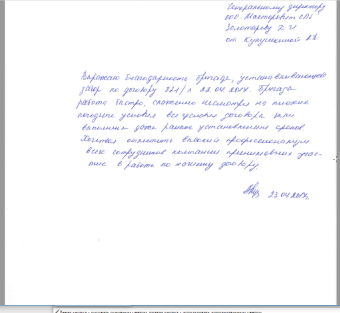 Генеральному директору
ООО Мастеровит СПб
Золотареву
от Кукушкиной
Выражаю благодарность бригаде, устанавливавшей
забор по договору от 04 2017. Бригада
работа быстро, слаженно несмотря на плохие
погодные условия все условия договора были
выполнены даже раньше установленных сроков
Хочется отметить высокий профессионализм
всех сотрудников компании принимавших учас-
тие в работе по нашему договору.
23.04.2017г.